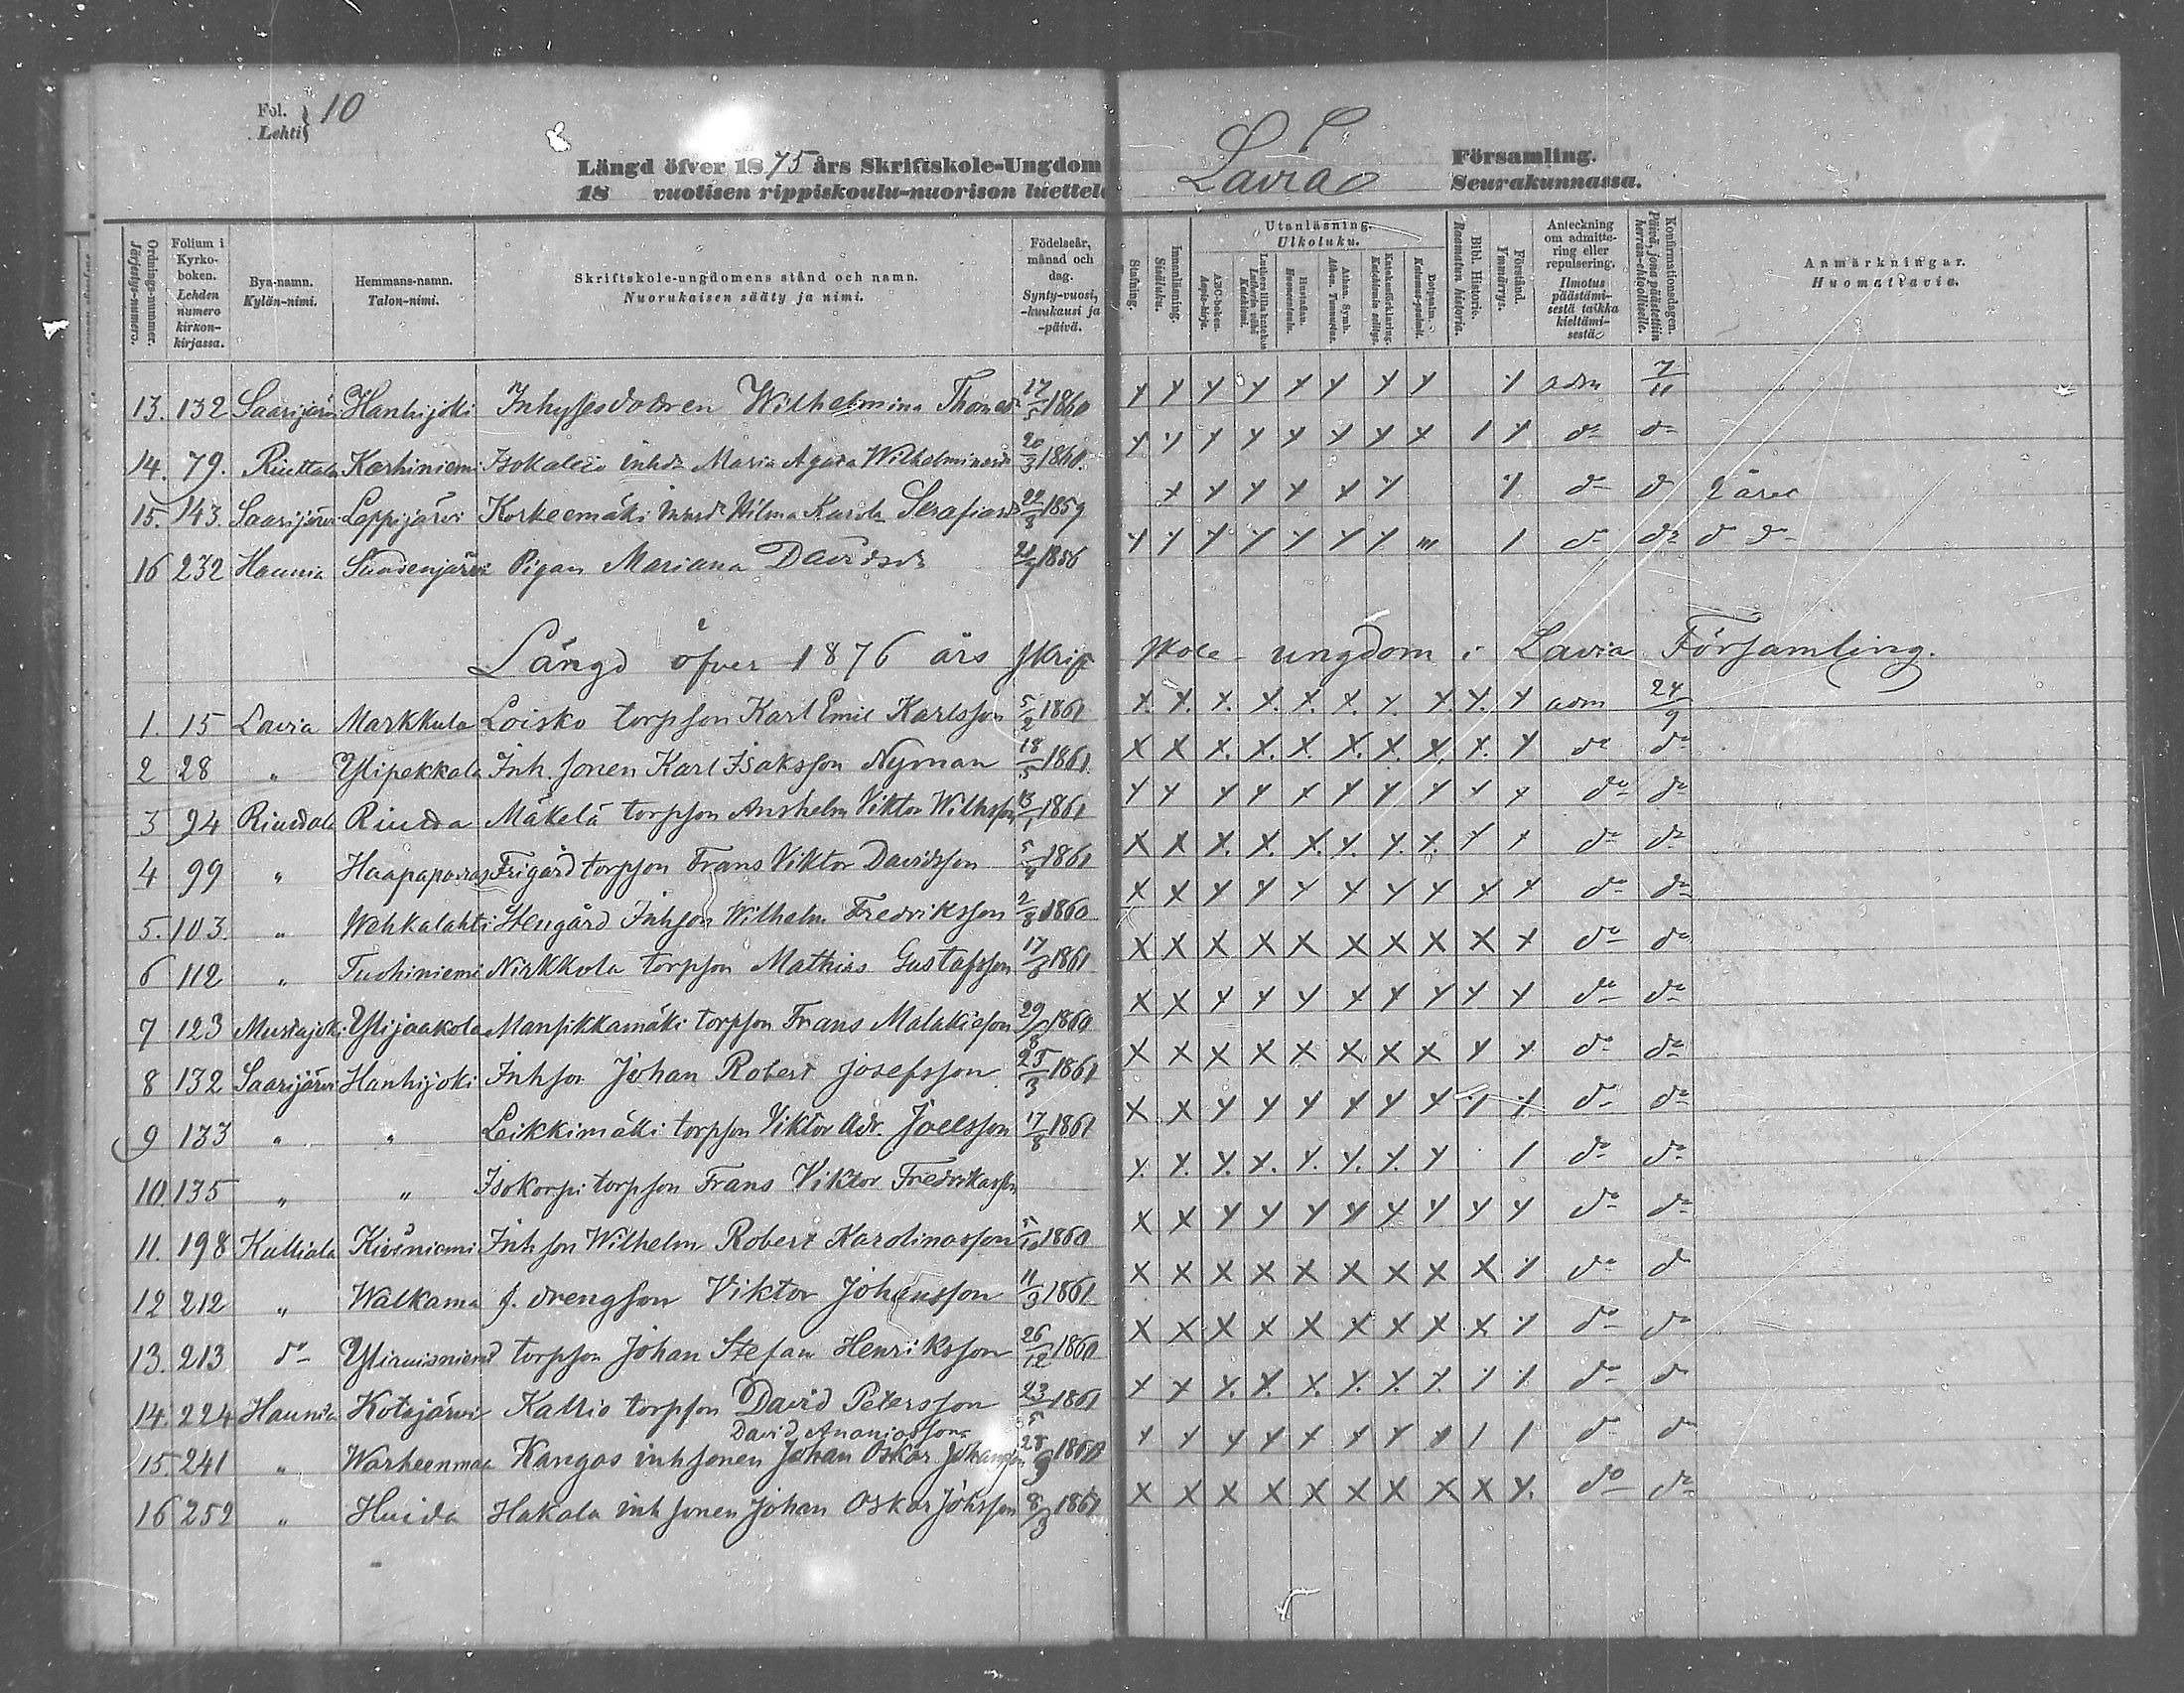 Fol. } 10
Lehti }
Längd öfver 1875 års Skriftskole-Ungdom i Lavia Församling.
18 vuotisen rippiskoulu-nuorison luettelo Seurakunnassa.
Ordnings-nummer. Järjestys-numero.
Folium i Kyrko-boken. Lehden numero kirkon-kirjassa.
Bya-namn. Kylän-nimi.
Hemmans-namn. Talon-nimi.
Skriftskole-ungdomens stånd och namn. Nuorukaisen sääty ja nimi.
Födelseår, månad och dag. Synty-vuosi, -kuukausi ja -päivä.
Stafning.
Innanläsning. Sisäluku.
Utanläsning. Ulkoluku.
ABC-boken. Aapis-kirja.
Lutheri lilla katekes Lutherin vähä Katekismi.
Hustaflan. Huoneentaulu.
Athan. Symb. Athan. Tunnustus.
Katekesförklaring. Katekismin selitys.
Botpsalm. Katumus-psalmit.
Bibl. Historie. Raamatun historia.
Förstånd. Ymmärrys.
Anteckning om admitte-ring eller repulsering. Ilmotus päästämi-sestä taikka kieltämi-sestä
Konfirmationsdagen. Päivä, jona päästettiin herran-ehtoolliselle.
Anmärkningar. Huomattavia.
13. 132 Saarijärvi Hanhijoki Inhysesdottren Wilhelmina Thomasdr 17/5 1860 x x x x x x x x x adm 7/11
14. 79. Riuttala Karhiniemi Isokallio inhdr Maria Agata Wilhelminasdr 20/3 1860. x x x x x x x x / x do do
15. 143. Saarijärvi Lappijärvi Korkeemäki inhdr Hilma Karola Serafiasdr 22/8 1859 x x x x x x x do do 2 året
16 232 Haunia Suodenjärvi Pigan Mariana Davidsdr 1856 x x x x x x x / do do do do
Längd öfver 1876 års skriftskole-ungdom i Lavia Församling.
1. 15 Lavia Markkula Loisko torpson Karl Emil Karlsson 5/2 1861 x. x. x. x. x. x. x. x. x. x adm 24/9
2 28 " Ylipekkala Inh. sonen Karl Isaksson Nyman 18/5 1861. x x x. x. x. x. x. x. x. x do do
3 94 Riuttala Riutta Mäkelä torpson Anshelm Viktor Wilhsson 13/1 1861 x x x x x x x x x x do do
4 99 " Haapaporras Frigård torpson Frans Viktor Davidsson 1861 x x x. x. x. x. x. x. x x do do
5. 103. " Wehkalahti Stengård Inhson Wilhelm Fredriksson 2/8 1860 x x x x x x x x x x do do
6 112 " Tuohiniemi Nirkkola torpson Mathias Gustafsson 1861 x x x x x x x x x x do do
7 123 Mustajoki Ylijaakola Mansikkamäki torpson Frans Malakiasson 29/8 1860 x x x x x x x x x x do do
8 132 Saarijärvi Hanhijoki Inhson Johan Robert Josefsson 25/3 1861 x x x x x x x x x x do do
9 133 " " Leikkimäki torpson Viktor Adr. Joelsson 17/8 1861 x x x x x x x x x x do do
10. 135 " " Isokorpi torpson Frans Viktor Fredrikasson x. x. x. x. x. x. x. x / do do
11. 198 Kalliala Kivisniemi Inh son Wilhelm Robert Karolinasson 1860 x x x x x x x x x x do do
12 212 " Walkama f. drengson Viktor Johansson 11/3 1861 x x x x x x x x x x do do
13. 213 do Yliruisniemi torpson Johan Stefan Henriksson 26/12 1860 x x x x x x x x x x do do
14. 224 Haunia Kotajärvi Kallio torpson David Petersson 23/5 1861 x x x. x. x. x. x. x. x x do do
David Ananiasson
15. 241 " Warheenmaa Kangas inhsonen Johan Oskar Johansson 28/9 1860 x x x x x x x x / / do do
16 252 " Huida Hakala inh sonen Johan Oskar Johsson 8/3 1861 x x x x x x x x x x. do do